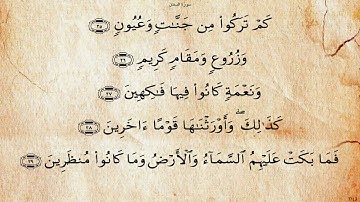 كَمْ تَرَكُوا۟ مِن جَنَّـٰتٍ وَعُيُونٍ ﴿٢٥﴾
وَزُرُوعٍ وَمَقَامٍ كَرِيمٍ ﴿٢٦﴾
وَنَعْمَةٍ كَانُوا۟ فِيهَا فَـٰكِهِينَ ﴿٢٧﴾
كَذَٰلِكَ ۖ وَأَوْرَثْنَـٰهَا قَوْمًا ءَاخَرِينَ ﴿٢٨﴾
فَمَا بَكَتْ عَلَيْهِمُ ٱلسَّمَآءُ وَٱلْأَرْضُ وَمَا كَانُوا۟ مُنظَرِينَ ﴿٢٩﴾